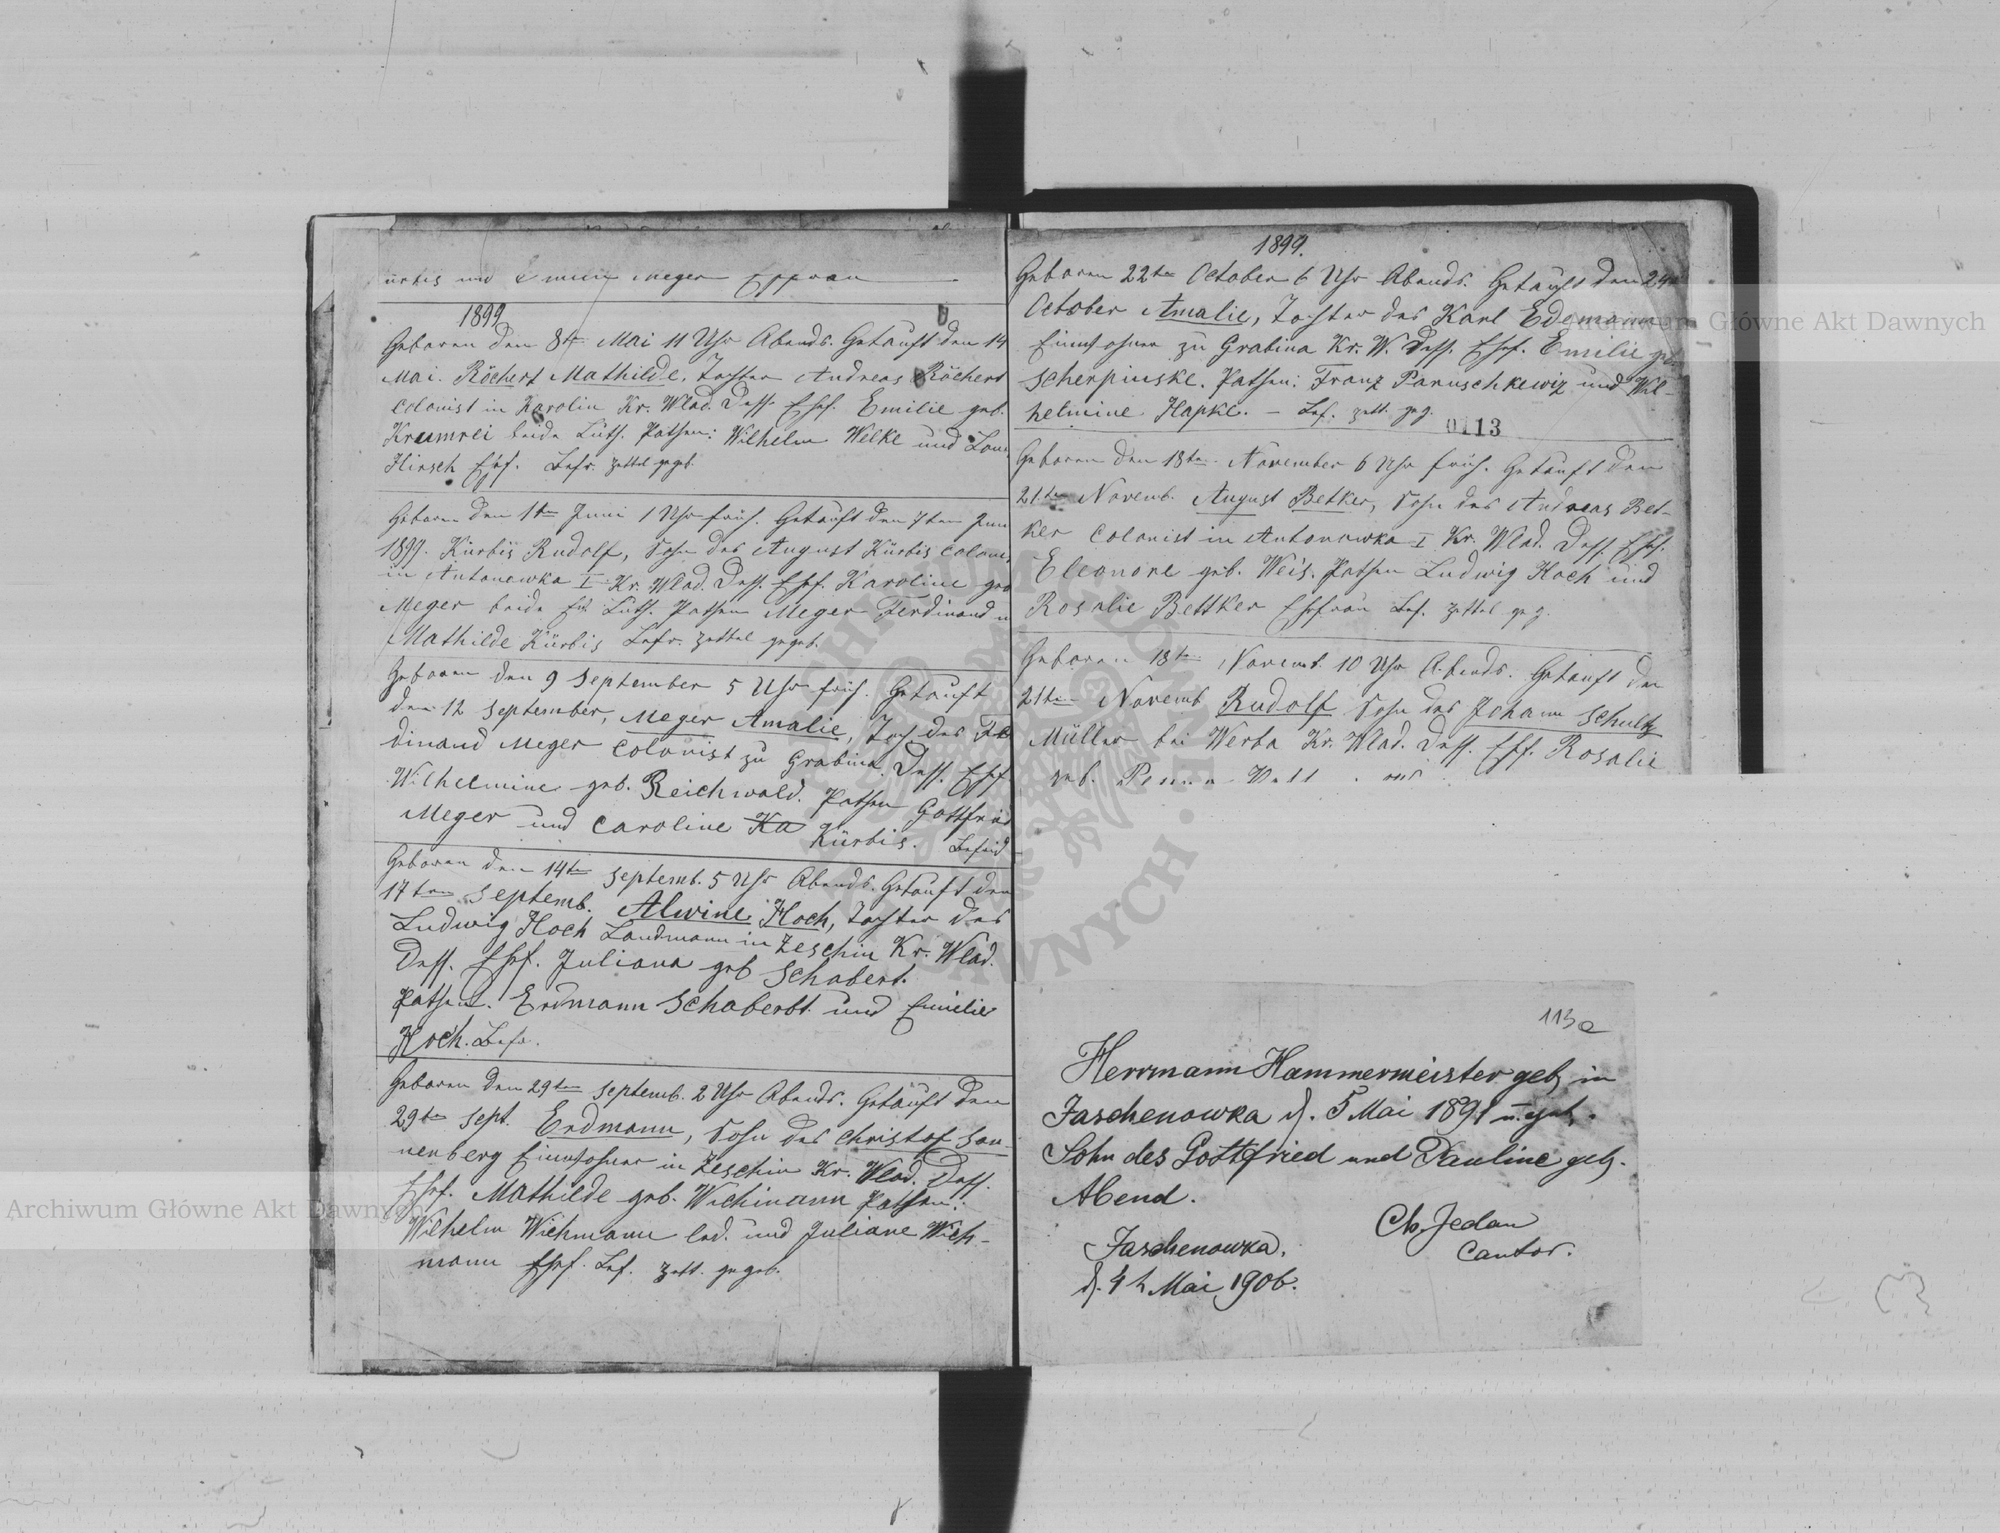 und Emilie Meger Ehefrau
1899
Geboren den 8ten Mai 11 Uhr Abends. Getauft den 14
Mai. Röchert Mathilde, Tochter Andreas Röchert
Colonist in Karolin Kr. Wlad. Dess. Ehef. Emilie geb.
Krumrei beide Luth. Pathen: Wilhelm Welke und
Hirsch Ehf. Bef. zettel gegeb.
Geboren den 1ten Juni 1 Uhr früh. Getauft den 7ten Juni
1899. Kürbis Rudolf, Sohn des August Kürbis Coloni
in Antonowka I Kr. Wlad. Dess. Ehf. Karoline geb
Meger beide Luth. Pathen Meger Ferdinand u
Mathilde Kürbis Befr. zettel gegeb.
Geboren den 9 September 5 Uhr früh. Getauft
den 12 September, Meger Amalie, Toch des Fer
dinand Meger Colonist zu Grabina. Dess. Ehf
Wilhelmine geb. Reichwald. Pathen Gottfried
Meger und Caroline Ka Kürbis.
Geboren den 14ten Septemb. 5 Uhr Abends. Getauft den
17ten Septemb. Alwine Hoch, Tochter des
Ludwig Hoch Landmann in Zeschin Kr. Wlad.
Dess. Ehef. Juliana geb Schabert.
Pathen. Erdmann Schaberbt und Emilie
Hoch. Befr.
Geboren den 29ten Septemb. 2 Uhr Abends. Getauft den
29ten Sept. Erdmann, Sohn des Christof Son-
nenberg Einwohner in Zeschin Kr. Wlad. Dess.
Ehef. Mathilde geb. Wichmann Pathen:
Wilhelm Wichmann led. und Juliane Wich-
mann Ehef. Bef. zett. gegeb.
1899.
Geboren 22ten October 6 Uhr Abends. Getauft den 24
October Amalie, Tochter des Karl Edemann
Einwohner zu Grabina Kr. W. Dess. Ehef. Emilie geb
Scherpinske. Pathen: Franz Paruschkewiz und Wil-
helmine Hapke. — Bef. zett. geg.
0113
Geboren den 18ten November 6 Uhr früh. Getauft den
21ten Novemb. August Betker, Sohn des Andreas Bet-
ker Colonist in Antonowka I Kr. Wlad. Dess. Ehef.
Eleonore geb. Weis. Pathen Ludwig Hoch und
Rosalie Bettker Ehefrau Bef. zettel geg.
Geboren 18ten Novemb. 10 Uhr Abends. Getauft den
21ten Novemb Rudolf Sohn des Johann Schultz
Müller bei Werba Kr. Wlad. Dess. Ehf. Rosalie
geb.
113a
Herrmann Hammermeister geb. in
Jaschenowka d. 5 Mai 1891 u. get.
Sohn des Gottfried und Pauline geb.
Abend.
Ch. Jedan
Cantor.
Jaschenowka.
d. 4 t. Mai 1906.
Archiwum Główne Akt Dawnych
Archiwum Główne Akt Dawnych